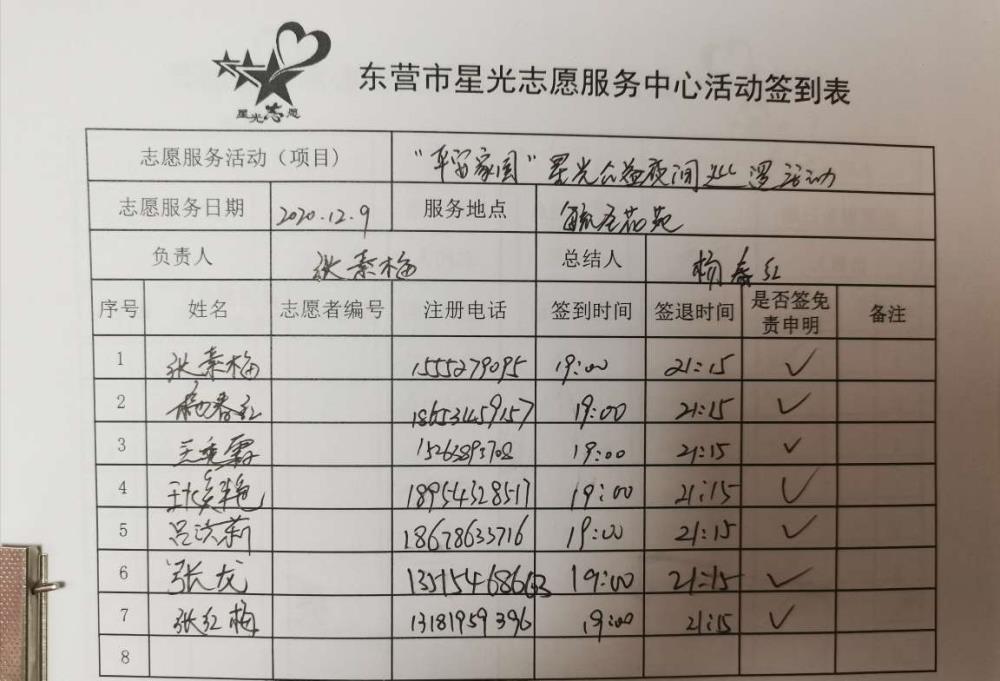 星光志愿
东营市星光志愿服务中心活动签到表
志愿服务活动（项目） “平安家园”星光公益夜间巡逻活动
志愿服务日期 2020.12.9 服务地点 花苑
负责人 张素梅 总结人 杨春红
序号 姓名 志愿者编号 注册电话 签到时间 签退时间 是否签免责申明 备注
1 张素梅 1555279095 19:00 21:15 ✓
2 杨春红 18653459157 19:00 21:15 ✓
3 15263893708 19:00 21:15 ✓
4 18954328517 19:00 21:15 ✓
5 吕洪莉 18678633716 19:00 21:15 ✓
6 张龙 19:00 21:15 ✓
7 张红梅 13181959396 19:00 21:15 ✓
8